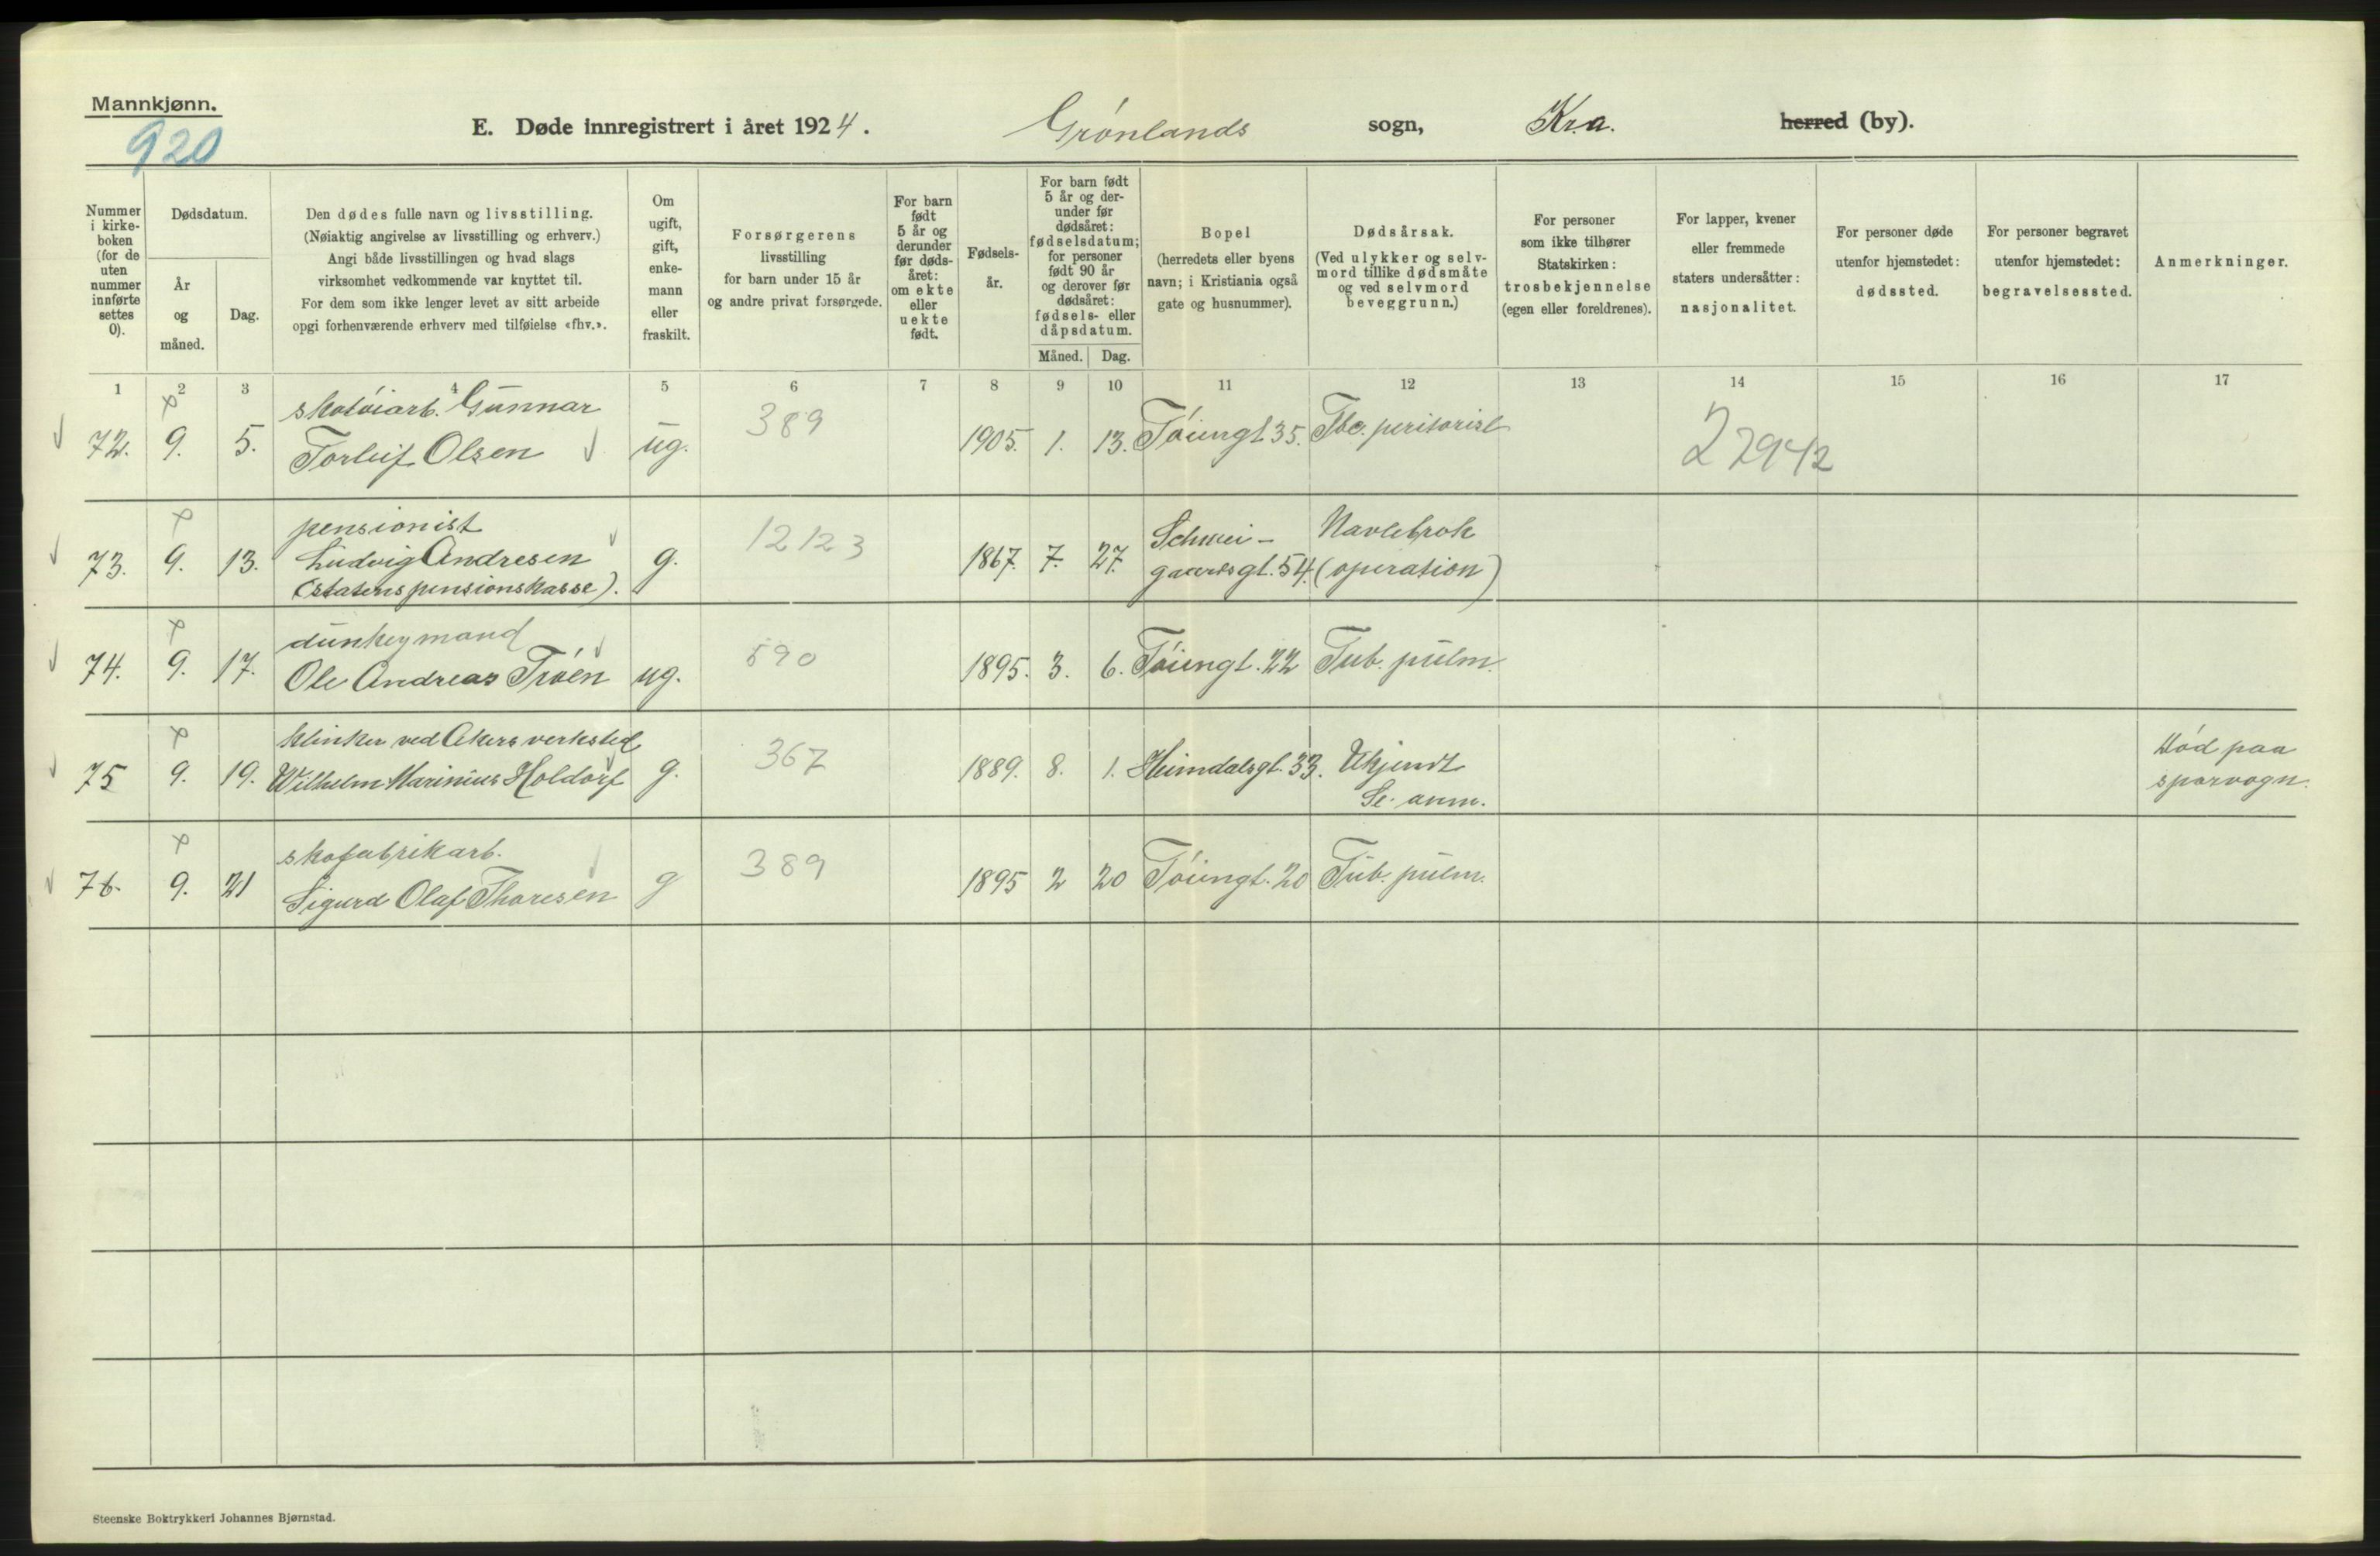 Mannkjønn.
920
E. Døde innregistrert i året 1924.
Grønlands sogn, Kr.a. herred (by).
Nummer i kirke-boken (for de uten nummer innførte settes 0).
Dødsdatum.
År og måned.
Dag.
Den dødes fulle navn og livsstilling.
(Nøiaktig angivelse av livsstilling og erhverv.)
Angi både livsstillingen og hvad slags
virksomhet vedkommende var knyttet til.
For dem som ikke lenger levet av sitt arbeide
opgi forhenværende erhverv med tilføielse «fhv.».
Om ugift, gift, enke-mann eller fraskilt.
Forsørgerens
livsstilling
for barn under 15 år
og andre privat forsørgede.
For barn født 5 år og derunder før døds-året: om ekte eller uekte født.
Fødsels-år.
For barn født 5 år og der-under før dødsåret: fødselsdatum; for personer født 90 år og derover før dødsåret: fødsels- eller dåpsdatum.
Måned. Dag.
Bopel
(herredets eller byens
navn; i Kristiania også
gate og husnummer).
Dødsårsak.
(Ved ulykker og selv-
mord tillike dødsmåte
og ved selvmord
beveggrunn.)
For personer
som ikke tilhører
Statskirken:
trosbekjennelse
(egen eller foreldrenes).
For lapper, kvener
eller fremmede
staters undersåtter:
nasjonalitet.
For personer døde
utenfor hjemstedet:
dødssted.
For personer begravet
utenfor hjemstedet:
begravelsessted.
Anmerkninger.
1 2 3 4 5 6 7 8 9 10 11 12 13 14 15 16 17
skotøiarb. Gunnar
72. 9. 5. Torleif Olsen ug. 389 1905. 1. 13. Tøiengt 35. Tbc. 22942
pensionist
73. 9. 13. Ludvig Andresen g. 12123 1867. 7. 27. Schwei- Navlebrok
(Statens pensionskasse). gaardsgt. 54. (operation)
dunkeymand
74. 9. 17. Ole Andreas Trøen ug. 590 1895. 3. 6. Tøiengt. 22 Tub. pulm.
klinker ved Akers verksted
75 9. 19. Wilhelm Marinius Holdorf g. 367 1889. 8. 1. Heimdalsgt. 33. Ukjendt Død paa
Se anm. sporvogn.
skofabrikarb.
76. 9. 21 Sigurd Olaf Thoresen g 389 1895 2 20 Tøiengt. 20 Tub. pulm.
Steenske Boktrykkeri Johannes Bjørnstad.